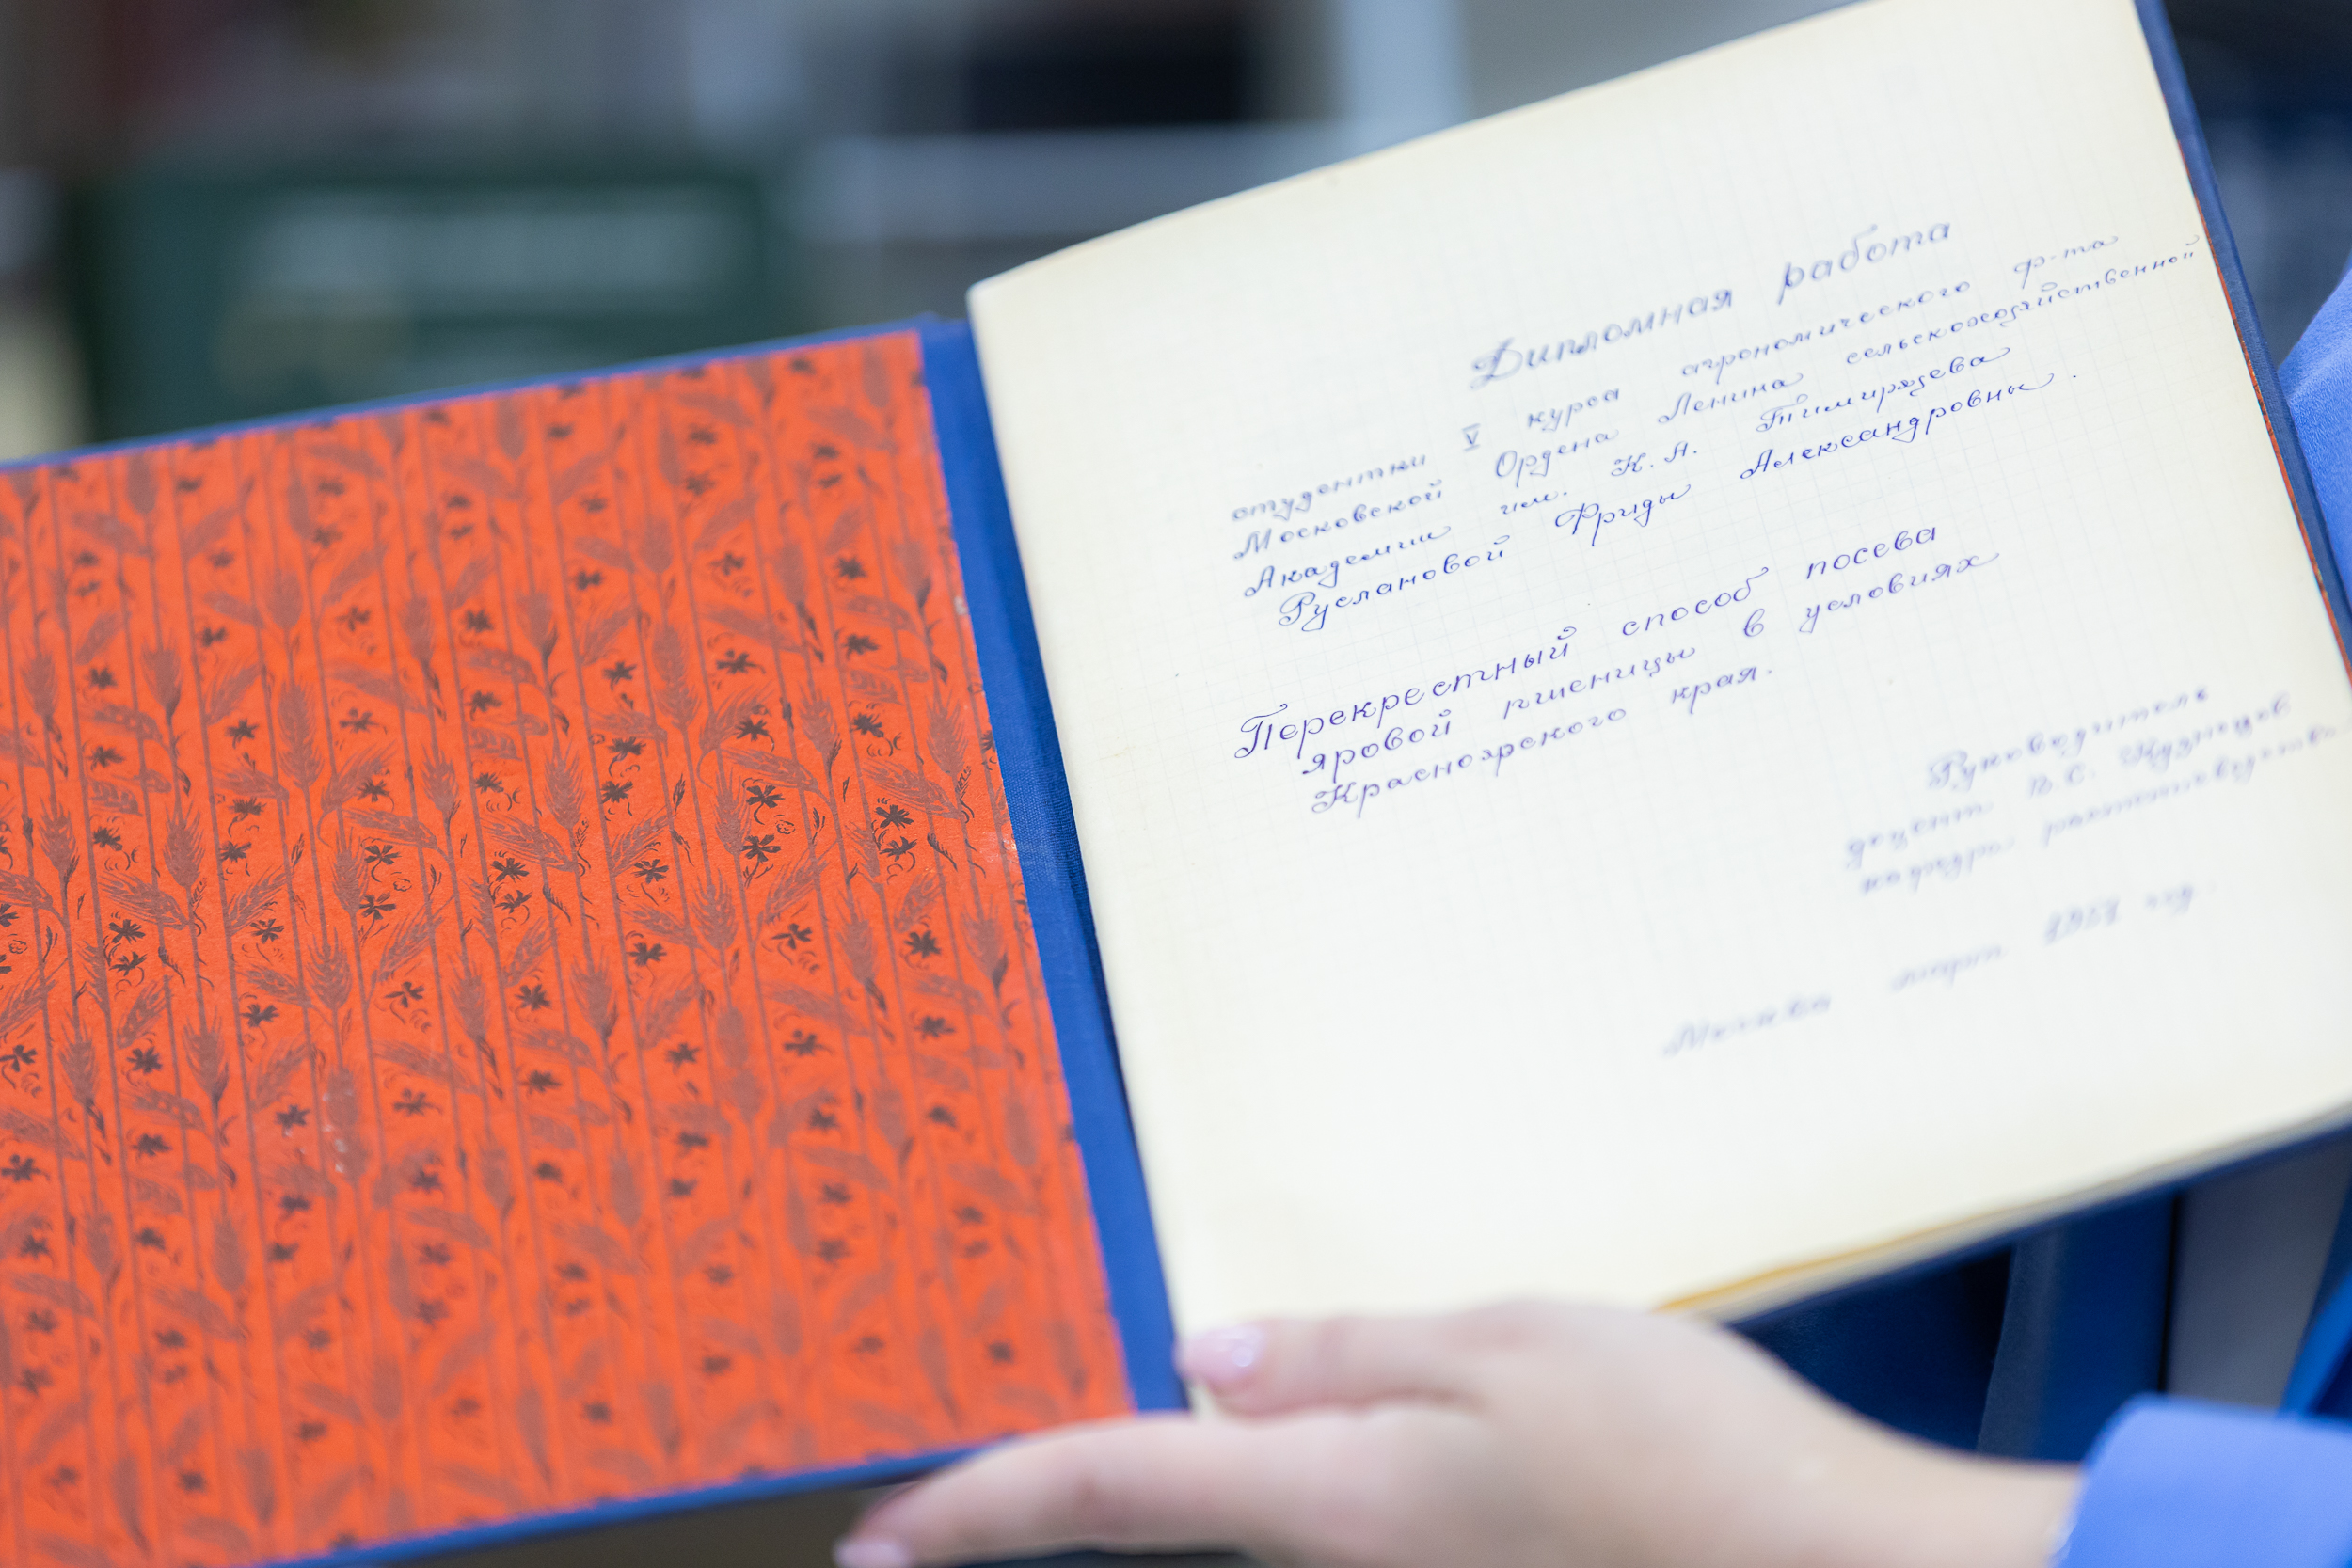 Дипломная работа
студентки V курса агрономического ф-та
Московской Ордена Ленина сельскохозяйственной
Академии им. К. А. Тимирязева
Руслановой Фриды Александровны.
Перекрестный способ посева
яровой пшеницы в условиях
Красноярского края.
Руководитель
доцент В.С. Кузнецов
кафедра растениеводства
Москва март